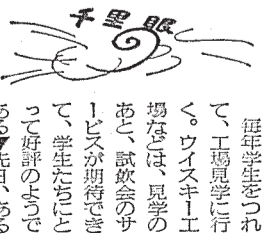 千里眼
毎年学生をつれ
て、工場見学に行
く。ウイスキー工
場などは、見学の
あと、試飲会のサ
ービスが期待でき
て、学生たちにと
って好評のようで
ある▼先日、ある